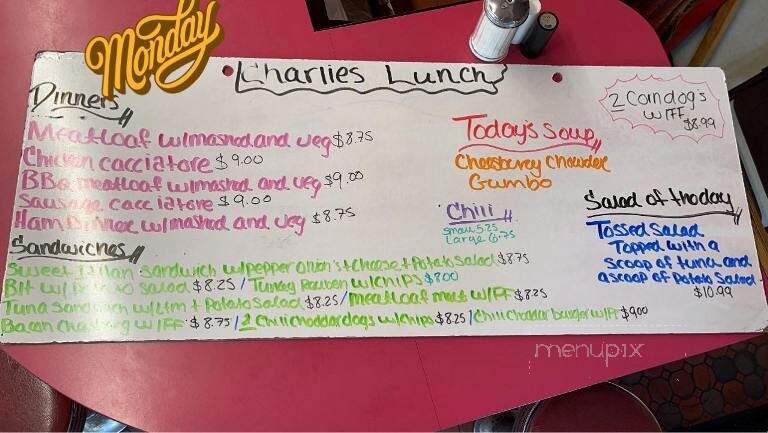 Monday
Charlies Lunch
Dinners
Meatloaf w/mashed and veg $8.75
Chicken cacciatore $9.00
BBQ meatloaf w/mashed and veg $9.00
Sausage cacciatore $9.00
Ham Dinner w/mashed and veg $8.75
Sandwiches
Sweet Italian sandwich w/pepper onion's + cheese + Potato Salad $8.75
Blt w/ Salad $8.25 / Turkey Reuben w/chips $8.00
Tuna Sandwich w/L+m + Potato Salad $8.25 / meatloaf melt w/FF $8.25
Bacon w/FF $8.75 / 2 Chili cheddar dogs w/chips $8.25 / Chili cheddar burger w/FF $9.00
Today's Soup
Cheesburey Chowder
Gumbo
Chili
Small 5.25
Large 6.75
2 Corndog's
w/FF
$8.99
Salad of the day
Tossed Salad
Topped with a
scoop of tuna and
a scoop of Potato Salad
$10.99
menupix